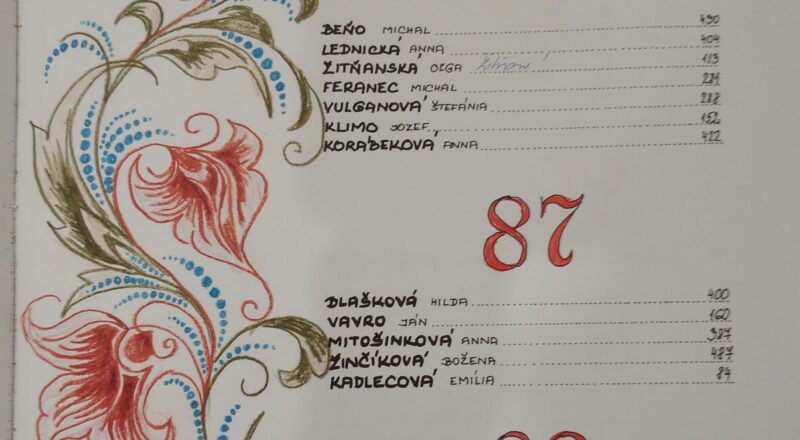 BEŇO MICHAL 490
LEDNICKÁ ANNA 404
ŽITŇANSKÁ OĽGA 113
FERANEC MICHAL 221
VULGANOVÁ ŠTEFÁNIA 288
KLIMO JOZEF 152
KORÁBEKOVÁ ANNA 422
87
BLAŠKOVÁ HILDA 400
VAVRO JÁN 160
MITOŠINKOVÁ ANNA 387
ŽINČÍKOVÁ BOŽENA 487
KADLECOVÁ EMÍLIA 84